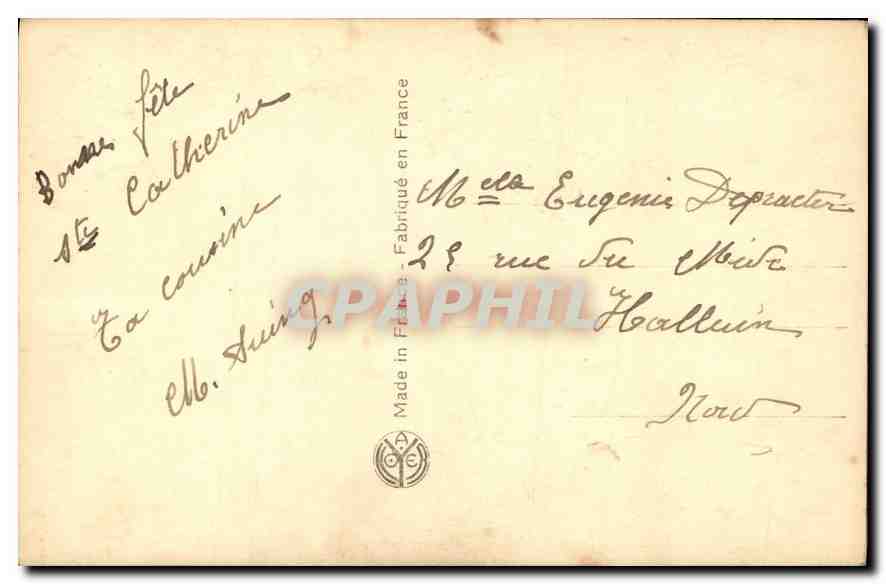 Bonne fête
Ste Catherine
Ta cousine
M.
Made in France - Fabriqué en France
Melle Eugenie Depraeter
25 rue du Midi
Halluin
Nord
CPAPHIL